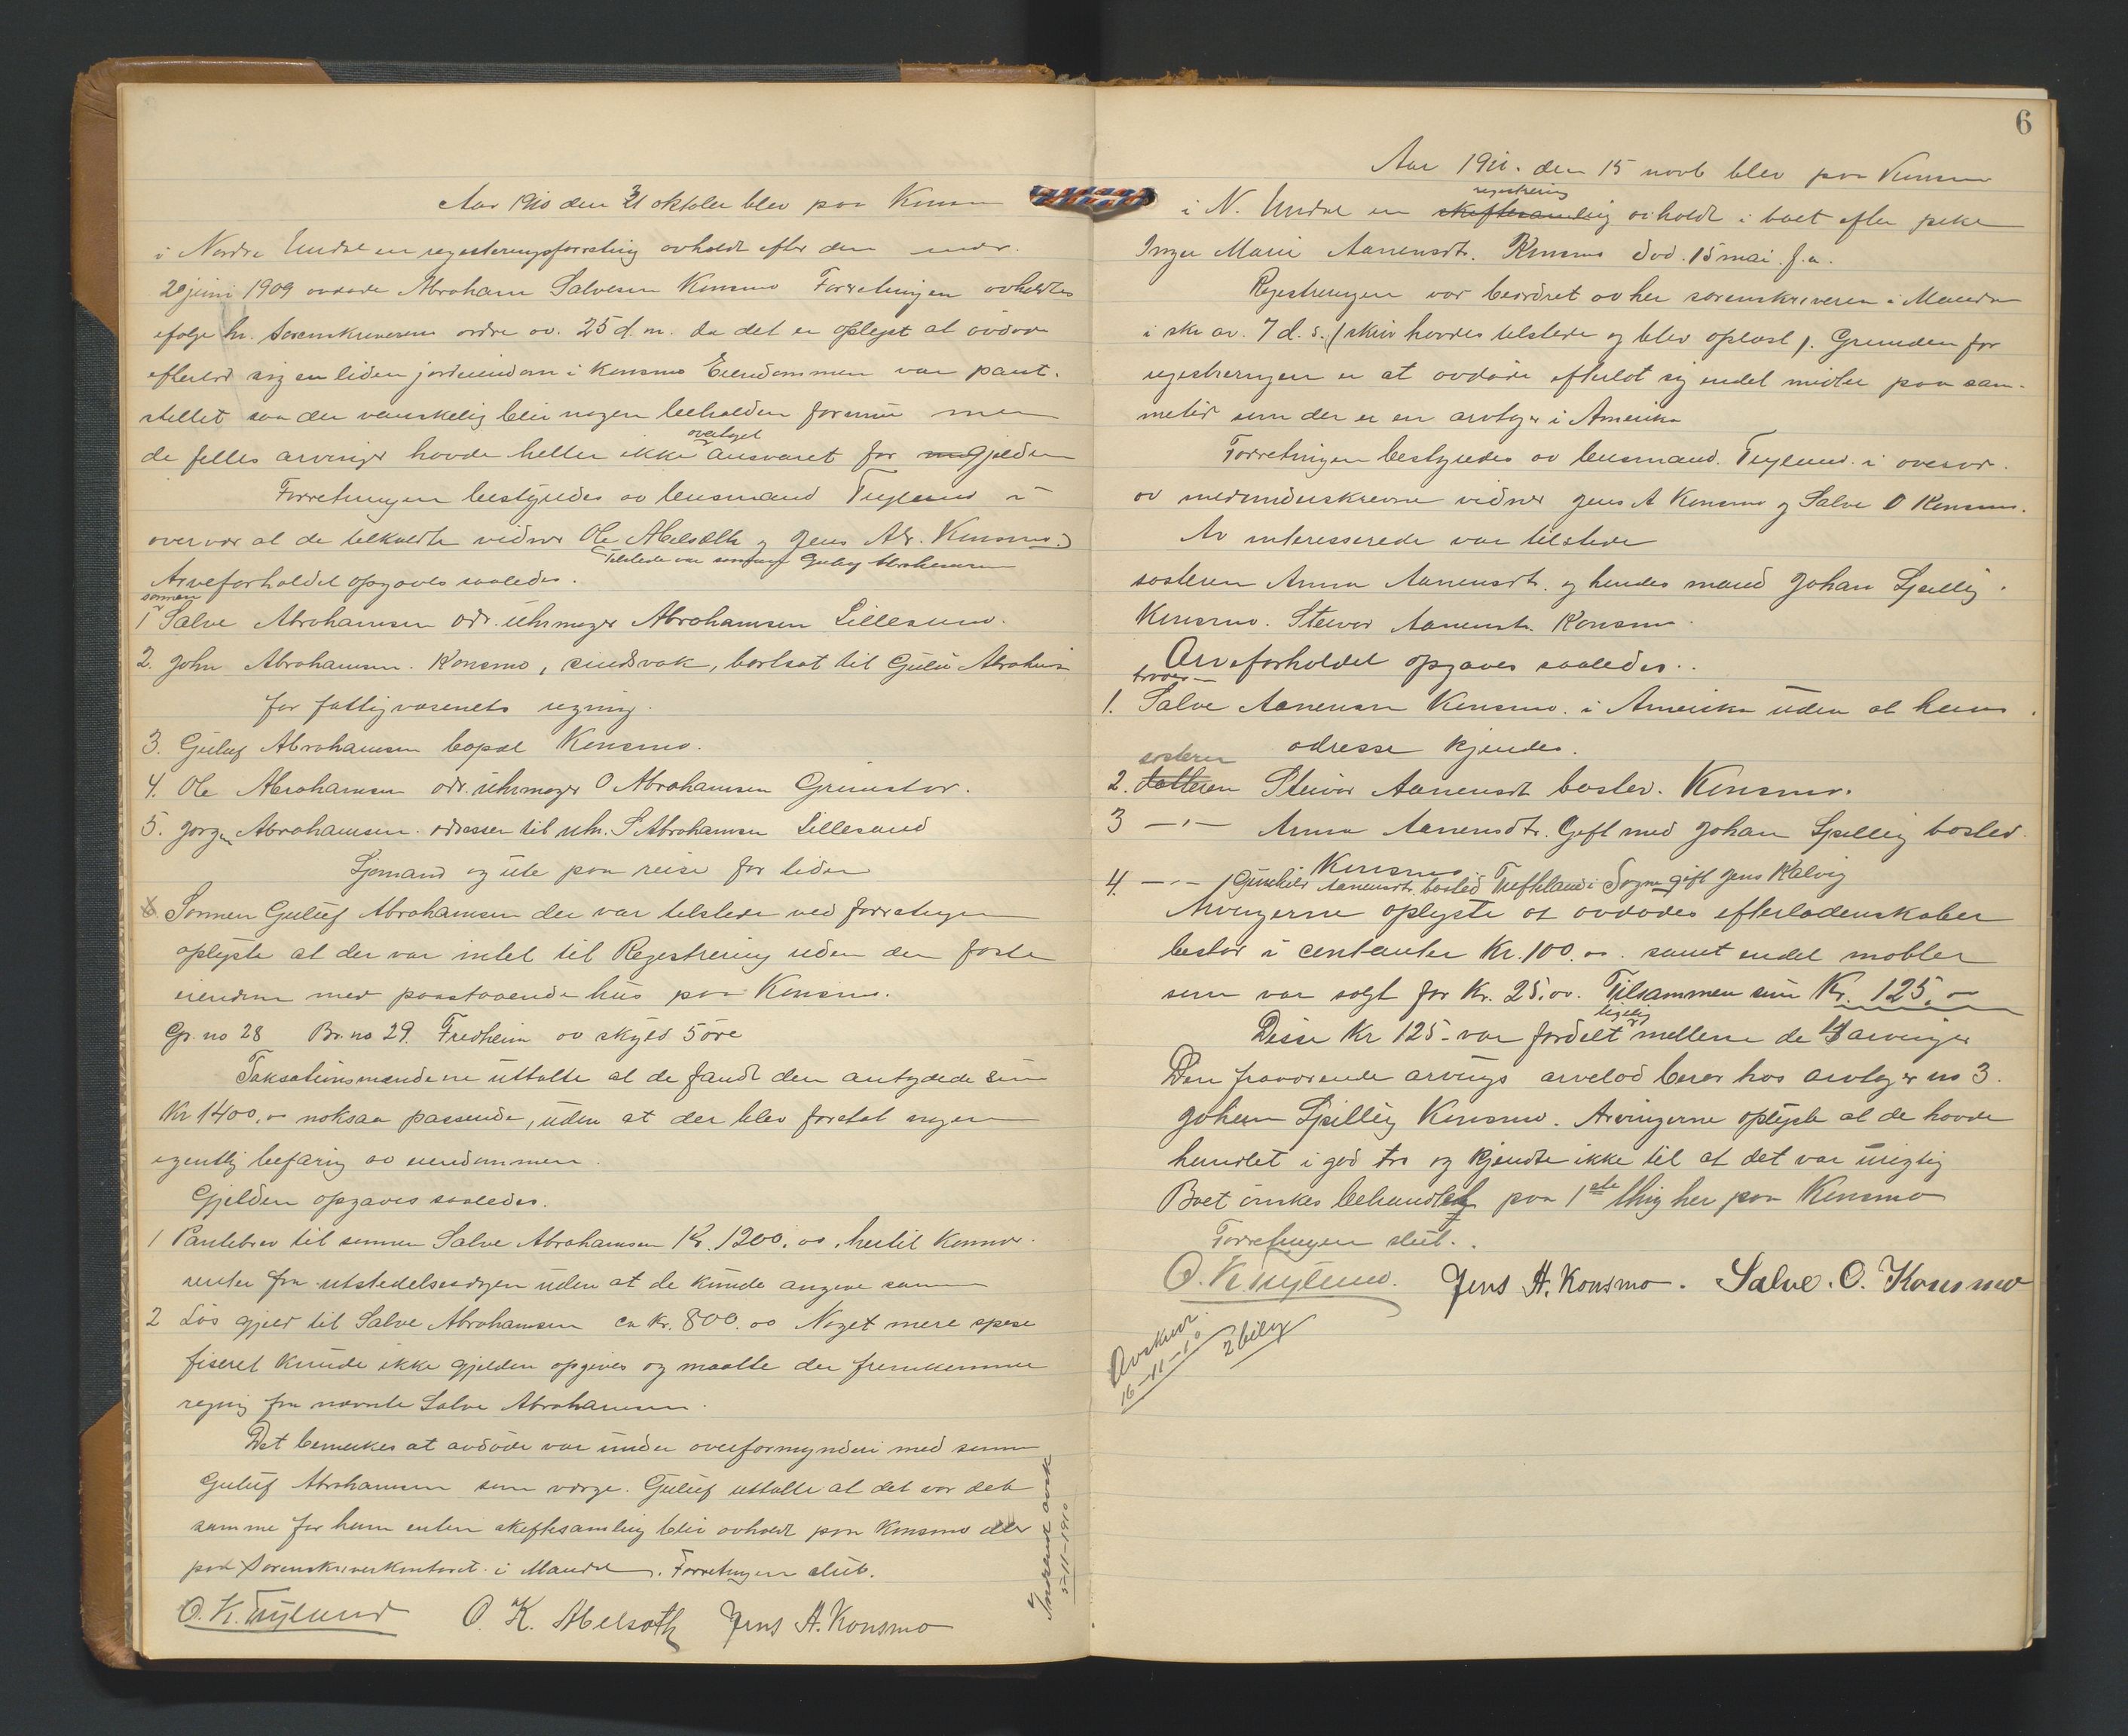 Aar 1910 den 31 oktober blev paa Konsmo
i Nordre Undal en registeringsforretning avholdt efter den under
20 juni 1909 avdøde Abraham Salvesen Konsmo Forretningen avholdtes
ifølge hr. sorenskriverens ordre av. 25 d. m. da det er oplyst at avdøde
efterlod sig en liden jordeiendom i Konsmo Eiendommen var pant-
stillet saa der vanskelig blir nogen beholden formue men
de felles arvinger havde heller ikke overtaget ansvaret for gjelden
Forretningen bestyredes av lensmand Trylund i
overvær af de tilkaldte vidner Ole Abelsæth og Jens Abr. Konsmo.
Tilstede var sønnen Guluf Abrahamsen
Arveforholdet opgaves saaledes.
sønnen
1 Salve Abrahamsen adr. uhrmager Abrahamsen Lillesund.
2. John Abrahamsen. Konsmo, sindsvak, bortsat til Guluf Abrahams
for fattigvæsenets regning.
3. Guluf Abrahamsen bopæl Konsmo.
4. Ole Abrahamsen adr. uhrmager O Abrahamsen Grimstad.
5. Jørgen Abrahamsen. adressen til uhr. S Abrahamsen Lillesand
Sjømand og ute paa reise for tiden
Sønnen Guluf Abrahamsen der var tilstede ved forretningen
oplyste at der var intet til Registrering uden den faste
eiendom med paastaaende hus paa Konsmo.
Gr. no 28 Br. no 29. Fredheim av skyld 5 øre
Taksationsmændene uttalte at de fandt den antydede sum
Kr 1400,00 noksaa passende, uden at der blev foretat nogen
egentlig befaring av eiendommen.
Gjelden opgaves saaledes.
1 Pantebrev til sønnen Salve Abrahamsen Kr. 1200,00, hertil kommer
renter fra utstedelsesdagen uden at de kunde angive samme
2 Løs gjeld til Salve Abrahamsen ca Kr. 800.00 Noget mere spesi
fiseret kunde ikke gjelden opgives og maatte der fremkomme
regning fra nævnte Salve Abrahamsen.
Det bemerkes at avdøde var under overformynderi med sønnen
Guluf Abrahamsen som værge. Guluf uttalte at det var det
samme for ham enten skiftesamling blir avholdt paa Konsmo eller
paa Sorenskriverkontoret i Mandal. Forretningen slut.
O. K. Trylund O. K. Abelsæth Jens A. Konsmo
Indsendt avsk
5-11-1910
6
Aar 1910. den 15 novb blev paa Konsmo
i N. Undal en skiftesamling registrering avholdt i boet efter pike
Inger Marie Aanensdt. Konsmo død. 15 mai. f.a.
Registreringen var beordret av her sorenskriveren i Mandal
i skr av. 7 d. s. (skriv havdes tilstede og blev oplæst). Grunden for
registreringen er at avdøde efterlot sig endel midler paa sam-
metid som der er en arvtager i Amerika
Forretningen bestyredes av lensmand. Trylund. i overvær.
av medunderskrevne vidner Jens A Konsmo og Salve O Konsmo.
Av interesserede var tilstede
søsteren Anna Aanensdt. og hendes mand Johan Spilling.
Konsmo. Steivor Aanensdt. Konsmo.
Arveforholdet opgaves saaledes..
broder
1. Salve Aanensen Konsmo. i Amerika uden at hans
adresse kjendes.
søsteren
2. datteren Steivor Aanensdt bosted. Konsmo.
3 —"— Anna Aanensdtr. Gift med Johan Spilling bosted.
Konsmo
4. —"— Gunhild Aanensdt. bosted Tufteland i Søgne gift Jens Kalvig
Arvingerne oplyste at avdødes efterladenskaber
bestod i contanter Kr. 100.00. samt endel møbler
som var solgt for Kr. 25.00. Tilsammen sum Kr. 125,-
Disse Kr 125.- var fordelt ligelig mellem de 4 arvinger
Den fraværende arvings arvelod beror hos arvtager no 3.
Johan Spilling Konsmo. Arvingerne oplyste at de havde
handlet i god tro og kjendte ikke til at det var urigtig
Boet ønskes behandlet paa 1ste thing her paa Konsmo
Forretningen slut.
O. K. Trylund. Jens A. Konsmo. Salve. O. Konsmo
Avskrevet
16-11-10
2 bilag